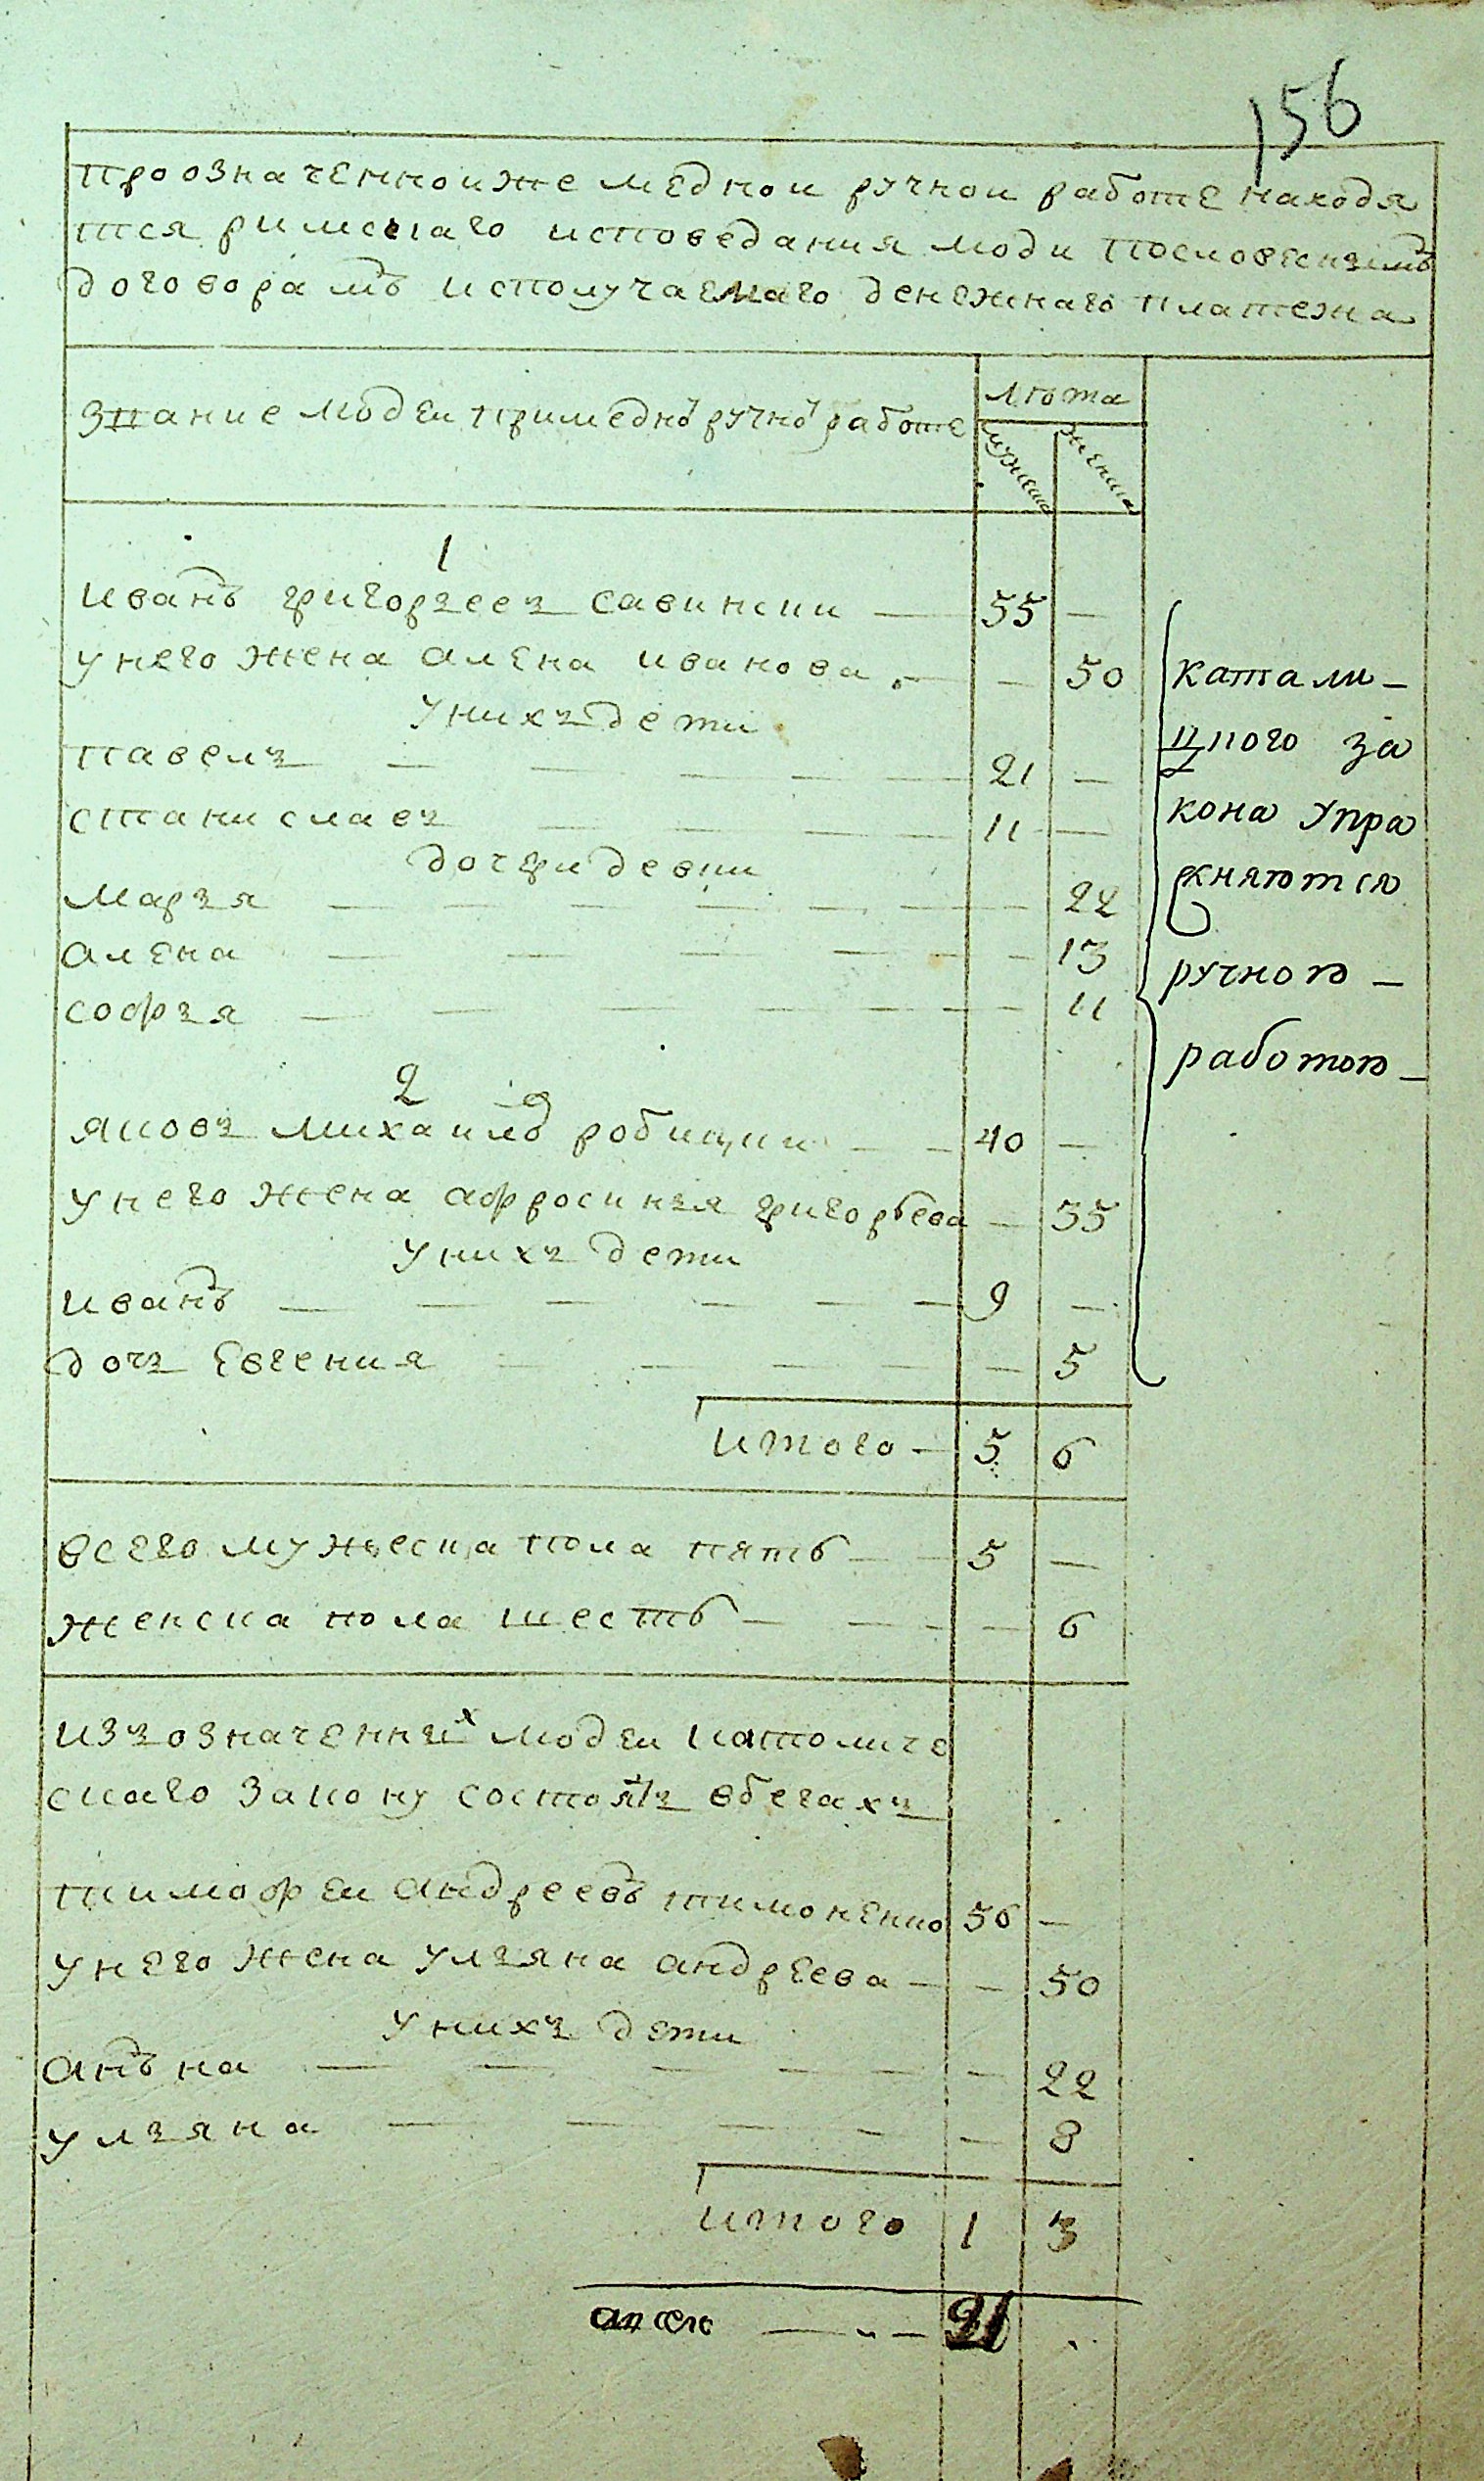 156
при означеннои же меднои ручнои работе находя
тся римскаго исповедания люди пословеснымъ
договорамъ исполучаемаго денежнаго платежа
Звание людеи примеднои ручнои работе
лѣта
мужеска
женска
1
иванъ григорьевъ савински — 55 —
унего жена алена иванова — — 50
унихъ дети
павелъ — 21 —
станиславъ — 11 —
дочери девки
марья — 22
алена — 13
софья — 11
2
яковъ михаиловъ робицки — 40 —
унего жена афросинья григорьева — 35
унихъ дети
иванъ — 9 —
дочь Евгения — 5
итого — 5 6
католи–
цкого за
кона упра
жняются
ручною –
работою –
всего мужеска пола пять — 5 —
женска пола шесть — 6
изъ означенныхъ людеи католиче
скаго закону состоятъ вбегахъ
тимофеи андреевъ тимоненко 56 —
унего жена ульяна андреева — — 50
унихъ дети
анъна — 22
ульяна — 8
итого 1 3
21